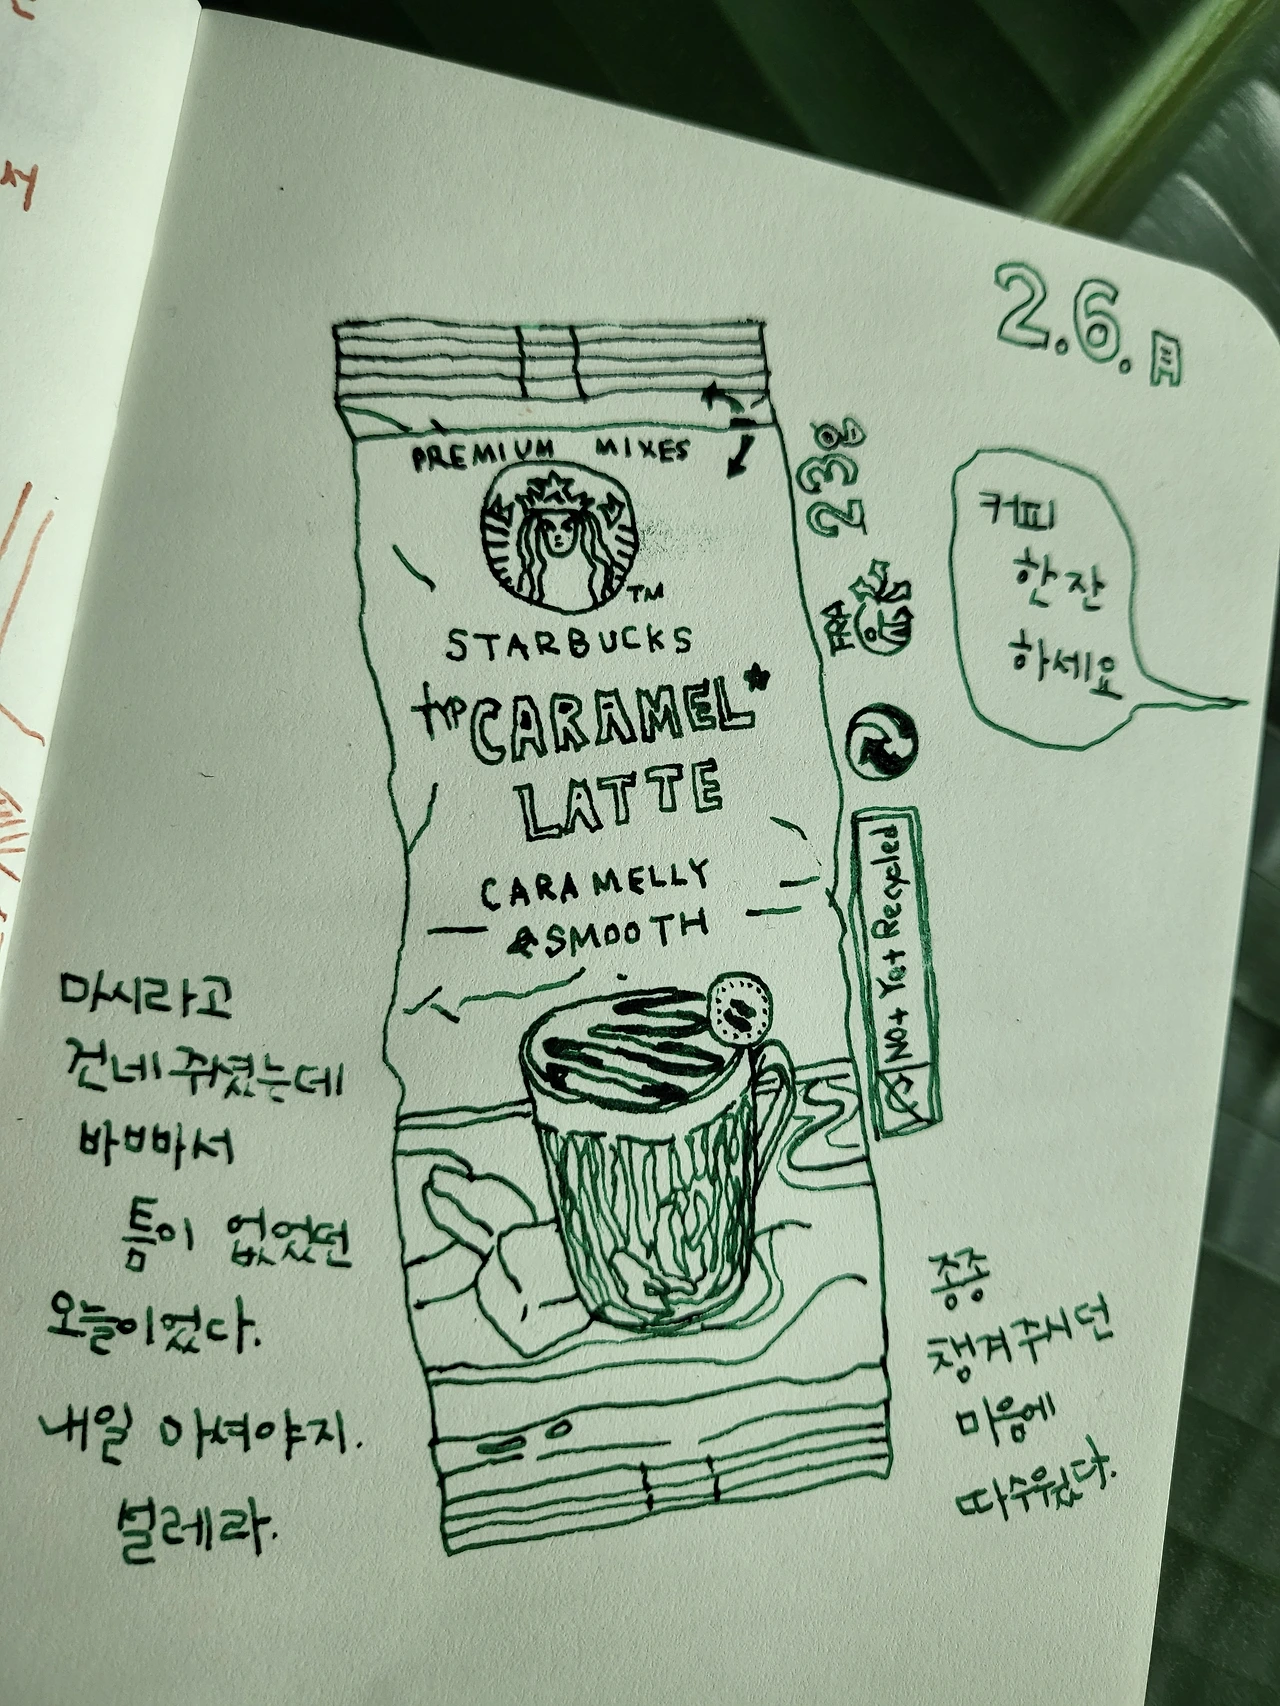 2.6.月
PREMIUM MIXES
TM
STARBUCKS
typ CARAMEL*
LATTE
CARAMELLY
&SMOOTH
23g
FRA
Not Yet Recycled
커피
한잔
하세요
마시라고
건네주셨는데
바빠서
틈이 없었던
오늘이었다.
내일 마셔야지.
설레라.
종종
챙겨주시던
마음에
따수웠다.